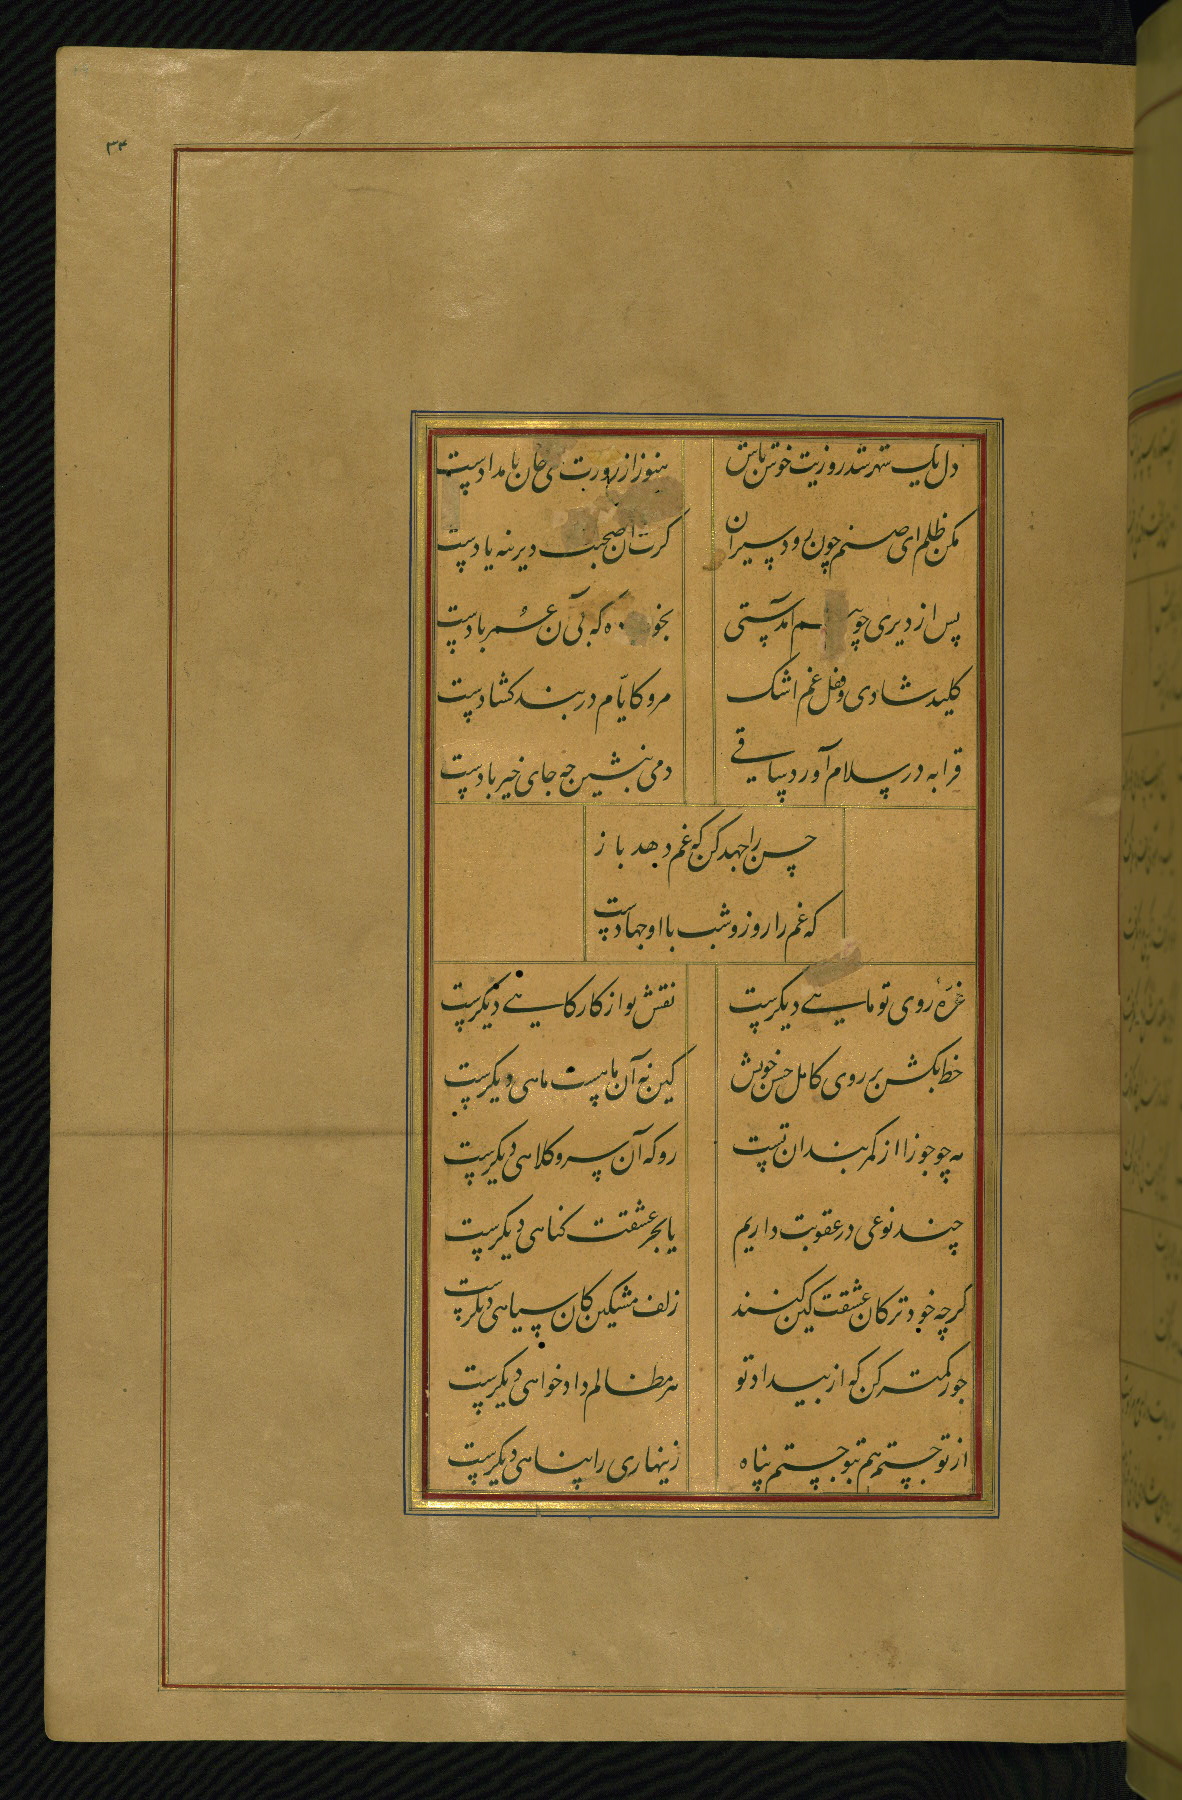 ۳۴
دل یک شهر شد روزیت خوش باش
هنوز از روزت ای جان بامدادست
مکن ظلم ای صنم چون رود سیران
کرت ان صحبت دیرینه یادست
پس از دیری چو امدستی
که بی آن عمر بادست
کلید شادی و قفل غم اشک
مرو کایام در بند کشادست
قرابه در سلام آورد ساقی
دمی بنشین چه جای خیربادست
حسن را جهد کن که غم دهد باز
که غم را روز و شب با او جهادست
غره روی تو ماهی دیکرست
نقش تو از کارکاهی دیکرست
خط بکش بر روی کامل حسن خویش
کین نه آن ماهست ماهی دیکرست
مه چو جوزا از کمربندان تست
رو که آن سرو کلاهی دیکرست
چند نوعی در عقوبت داریم
یا بجز عشقت کناهی دیکرست
کرچه خود ترکان عشقت کین کنند
زلف مشکین کان سیاهی دیکرست
جور کمتر کن که از بیداد تو
هر مظالم دادخواهی دیکرست
از تو جستم هم بتو جستم پناه
زینهاری را پناهی دیکرست